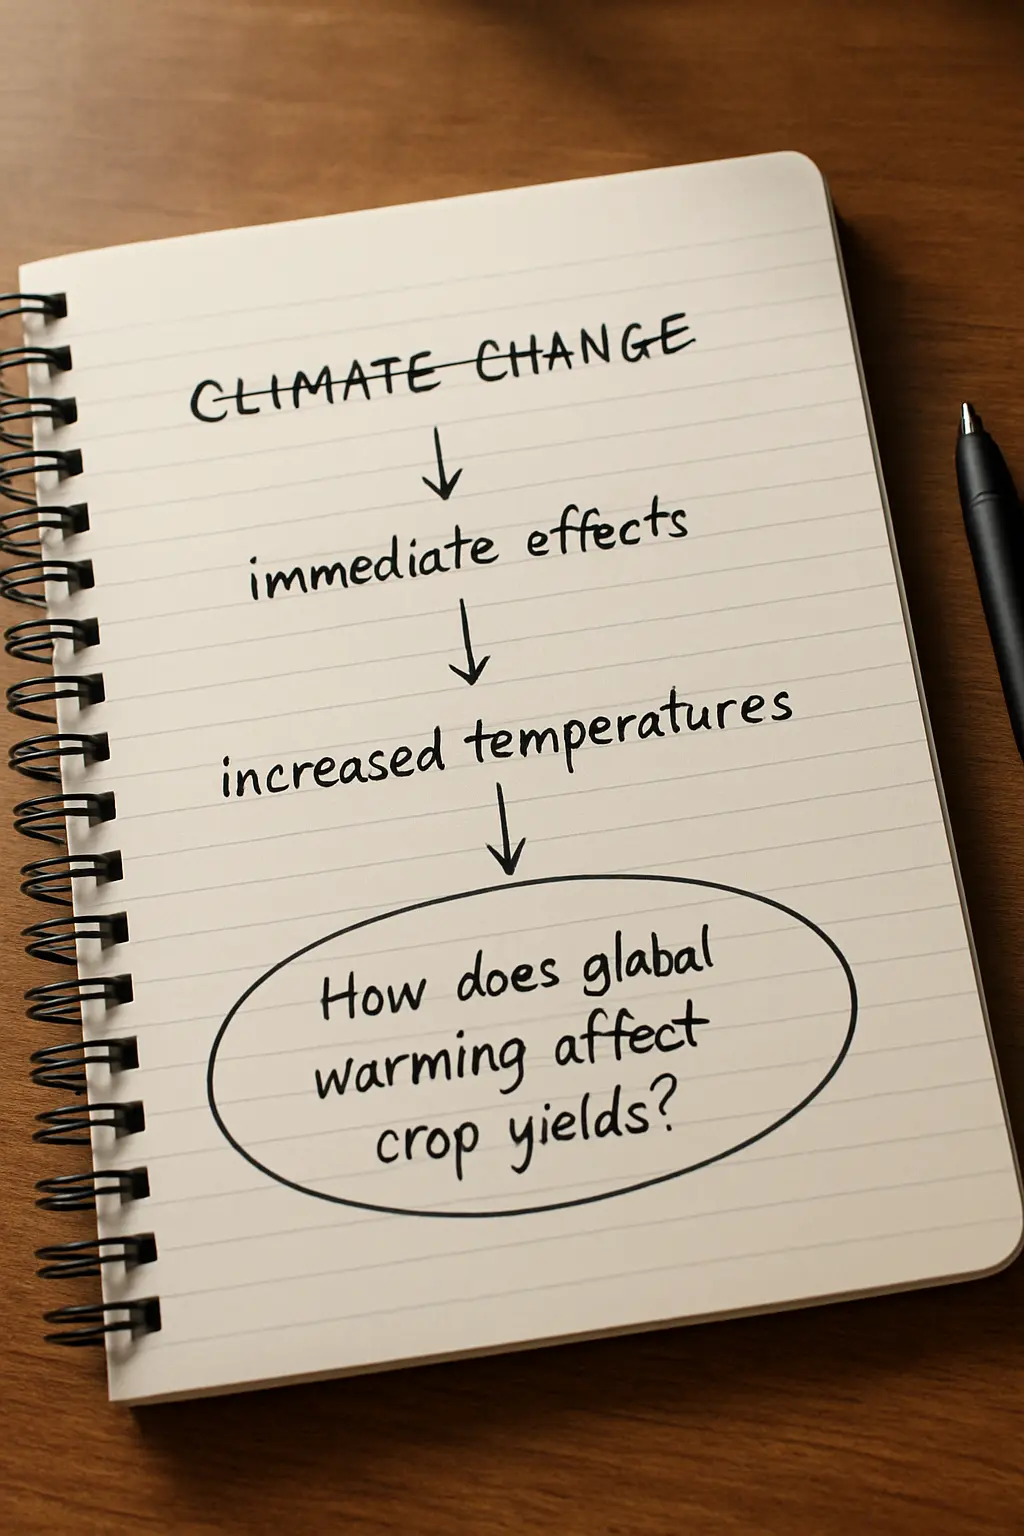 CLIMATE CHANGE
immediate effects
increased temperatures
How does glabal
warming affect
crop yields?